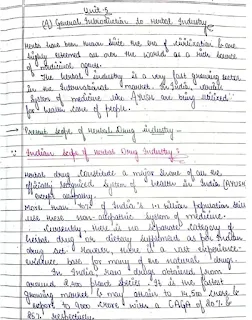 Unit-5
(A) General Introduction to Herbal Industry
Herbs have been known since the era of civilization & are
highly esteemed all over the world as a rich source
of medicinal agent.
The herbal industry is a very fast growing sector
in the International market. In India,
System of medicine like AYUSH are being utilized
for health care of people.
Present Scope of Herbal Drug industry -
Indian Scope of Herbal Drug Industry :-
Herbal drug constitute a major share of all the
officially recognised system of health in India (AYUSH
except
More than 70% of India's 1.1 billion population still
use these non-allopathic system of medicine.
Currently, there is no separate category of
herbal drug or dietary supplement as per Indian
drug act. However, there is a vast experience
evidence base for many of the natural drugs.
In India, raw drugs obtained from
around plant species. It is the fastest
growing market & may attain to 14,500 crore &
export to 9000 crore with a CAGR of 20% &
25% respectively.